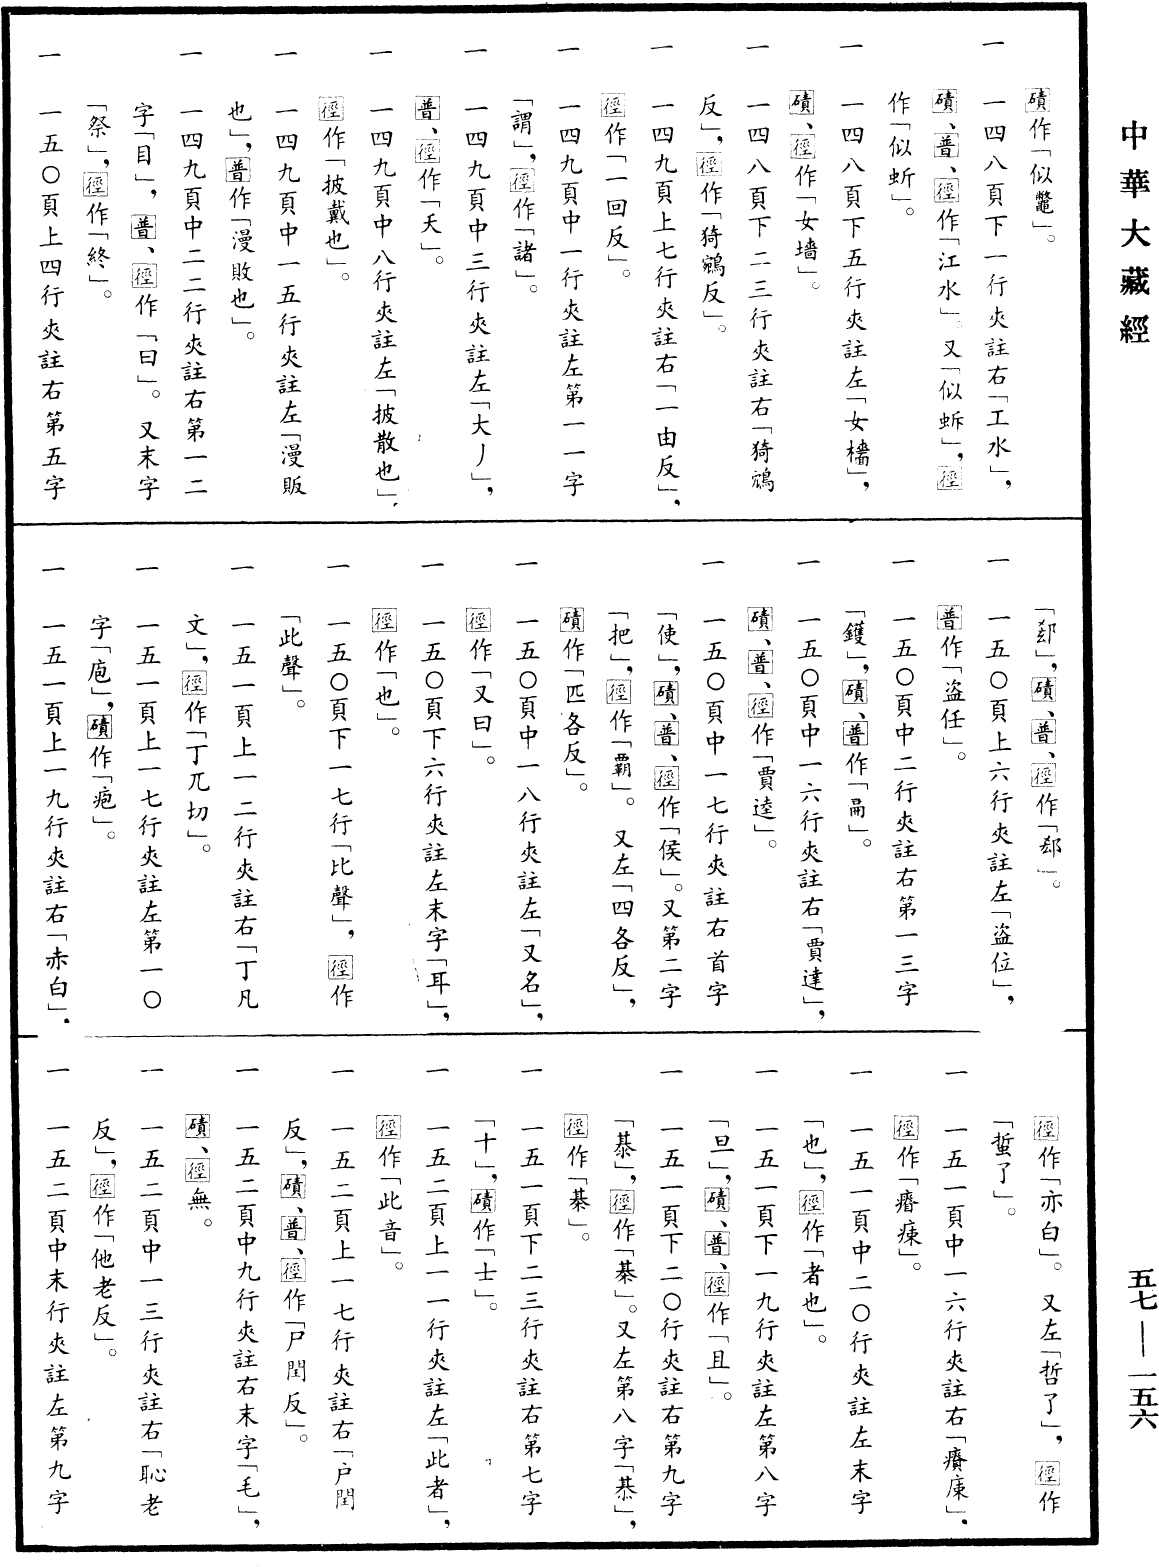 中華大藏經
五七—一五六
磧作「似鼈」。
一 一四八頁下一行夾註右「工水」，
磧、普、徑作「江水」。又「似蚸」，徑
作「似蚚」。
一 一四八頁下五行夾註左「女檣」，
磧、徑作「女墻」。
一 一四八頁下二三行夾註右「猗鵷
反」，徑作「猗鵷反」。
一 一四九頁上七行夾註右「一由反」，
徑作「一回反」。
一 一四九頁中一行夾註左第一一字
「謂」，徑作「諸」。
一 一四九頁中三行夾註左「大丿」，
普、徑作「天」。
一 一四九頁中八行夾註左「披散也」，
徑作「披戴也」。
一 一四九頁中一五行夾註左「漫販
也」，普作「漫敗也」。
一 一四九頁中二二行夾註右第一二
字「目」，普、徑作「曰」。又末字
「祭」，徑作「終」。
一 一五〇頁上四行夾註右第五字
「郄」，磧、普、徑作「郄」。
一 一五〇頁上六行夾註左「盜位」，
普作「盜任」。
一 一五〇頁中二行夾註右第一三字
「鑊」，磧、普作「鬲」。
一 一五〇頁中一六行夾註右「賈達」，
磧、普、徑作「賈逵」。
一 一五〇頁中一七行夾註右首字
「使」，磧、普、徑作「侯」。又第二字
「把」，徑作「霸」。又左「四各反」，
磧作「匹各反」。
一 一五〇頁中一八行夾註左「又名」，
徑作「又曰」。
一 一五〇頁下六行夾註左末字「耳」，
徑作「也」。
一 一五〇頁下一七行「比聲」，徑作
「此聲」。
一 一五一頁上一二行夾註右「丁凡
文」，徑作「丁兀切」。
一 一五一頁上一七行夾註左第一〇
字「庖」，磧作「疱」。
一 一五一頁上一九行夾註右「赤白」，
徑作「亦白」。又左「哲了」，徑作
「蜇了」。
一 一五一頁中一六行夾註右「癪庲」，
徑作「瘠瘷」。
一 一五一頁中二〇行夾註左末字
「也」，徑作「者也」。
一 一五一頁下一九行夾註左第八字
「旦」，磧、普、徑作「且」。
一 一五一頁下二〇行夾註右第九字
「惎」，徑作「綦」。又左第八字「惎」，
徑作「綦」。
一 一五一頁下二三行夾註右第七字
「十」，磧作「士」。
一 一五二頁上一一行夾註左「此者」，
徑作「此音」。
一 一五二頁上一七行夾註右「户閏
反」，磧、普、徑作「尸閏反」。
一 一五二頁中九行夾註右末字「毛」，
磧、徑無。
一 一五二頁中一三行夾註右「恥老
反」，徑作「他老反」。
一 一五二頁中末行夾註左第九字